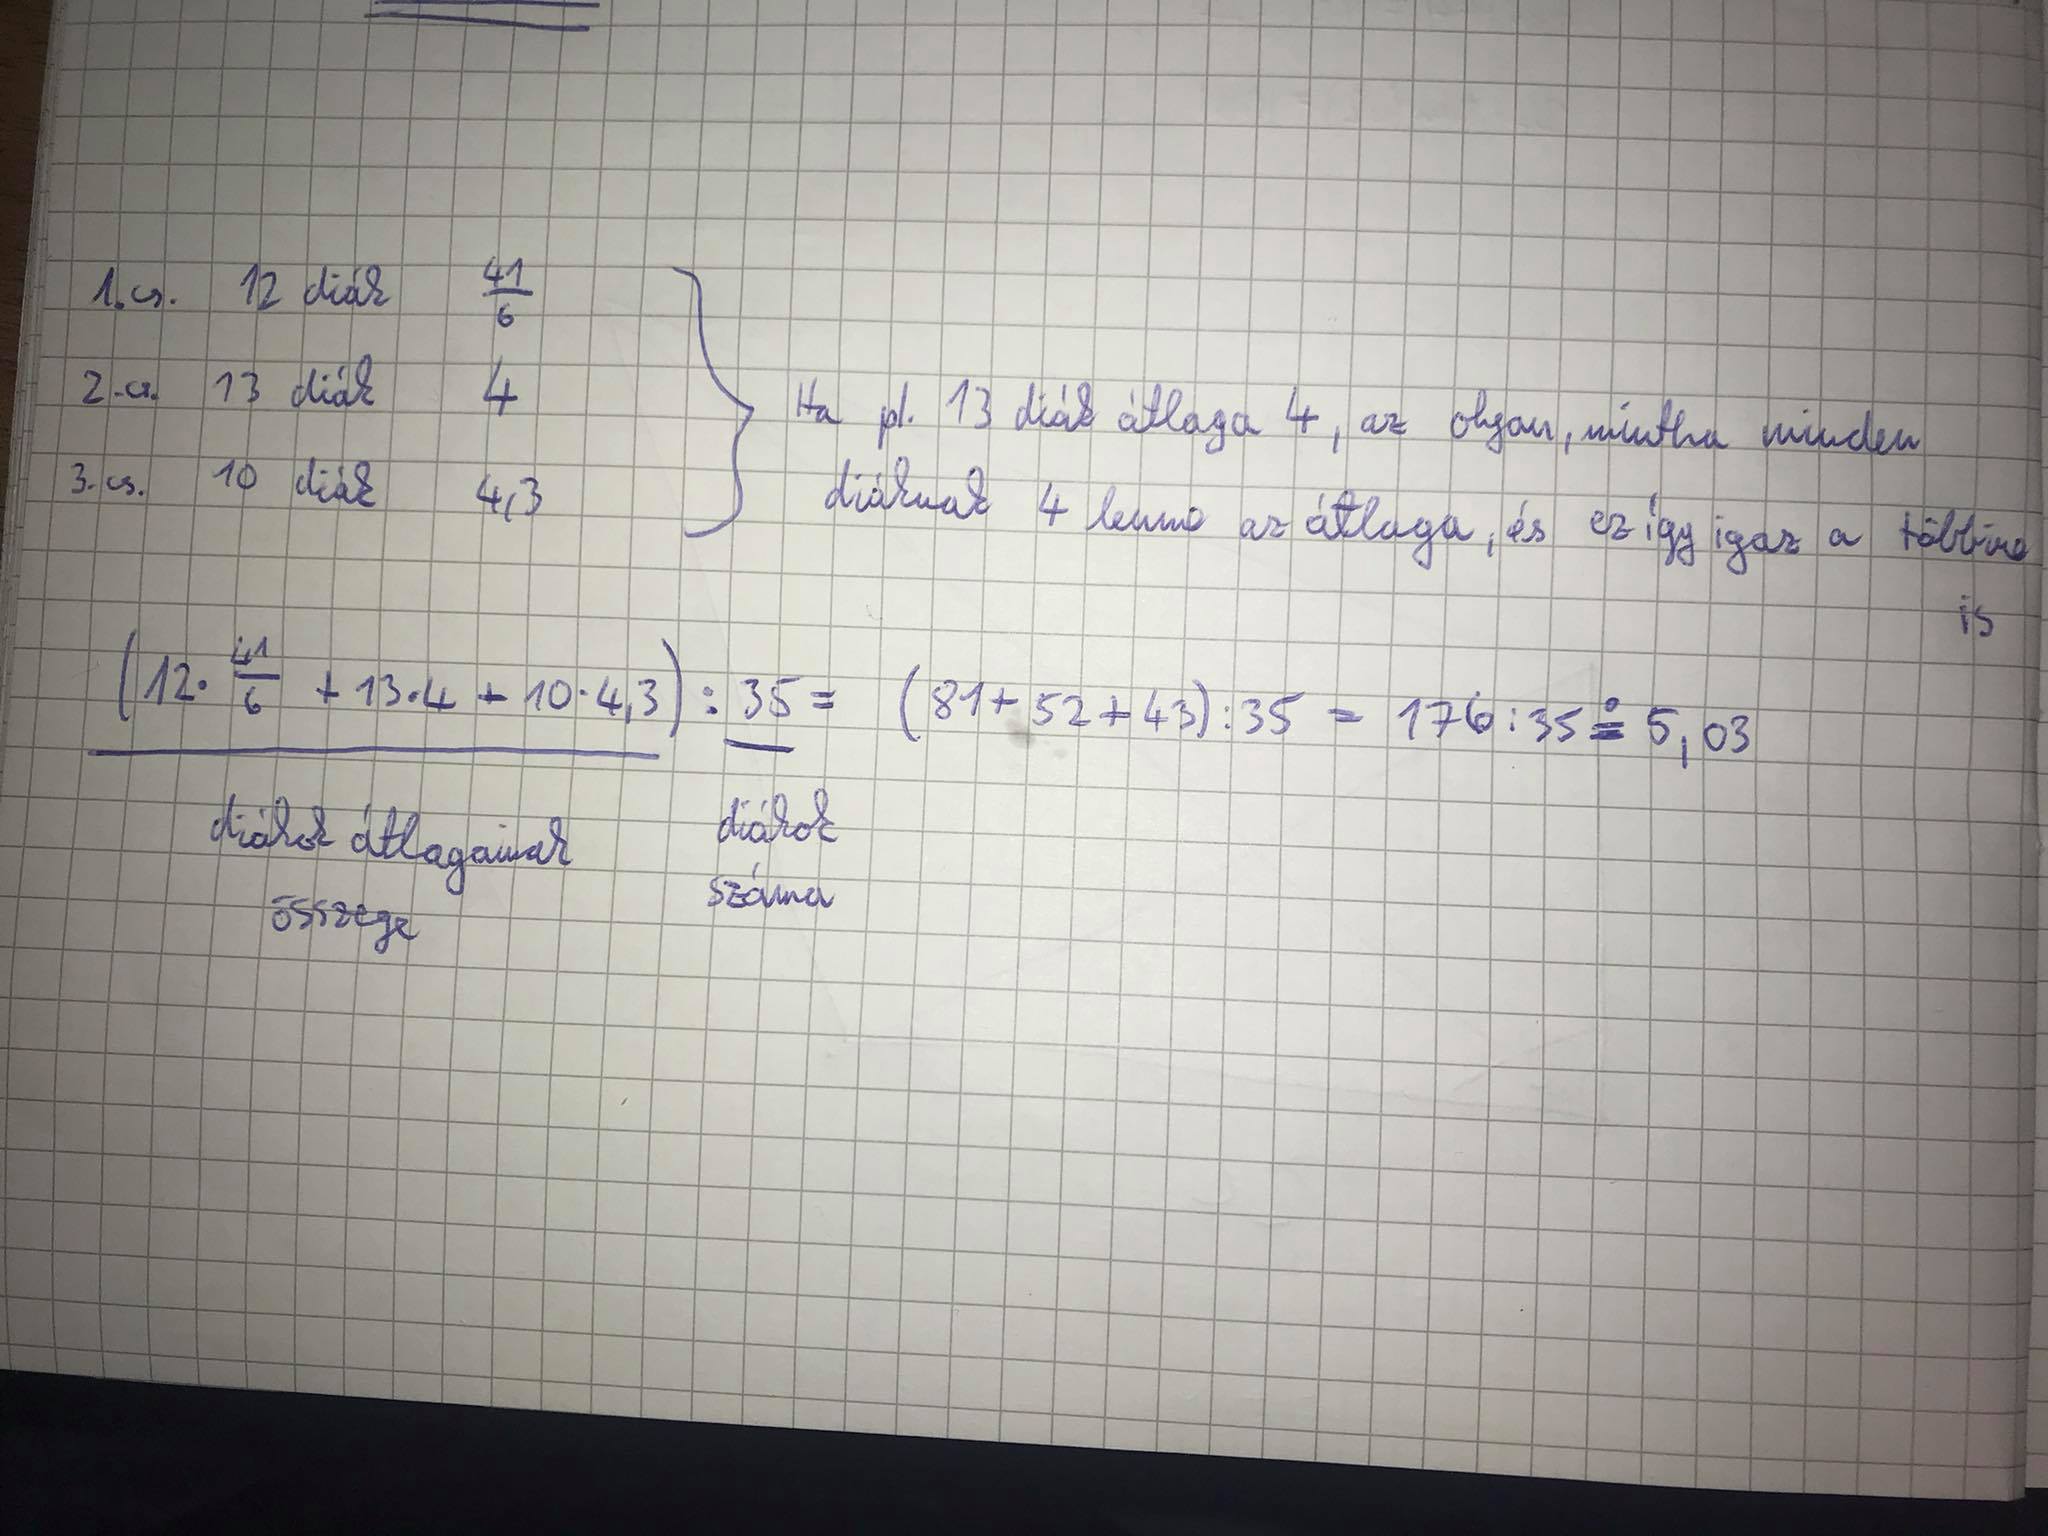 1. cs. 12 diák 41/6
2. cs. 13 diák 4
3. cs. 10 diák 4,3
Ha pl. 13 diák átlaga 4, az olyan, mintha minden
diáknak 4 lenne az átlaga, és ez így igaz a többire
is
(12· 41/6 + 13·4 + 10·4,3) : 35 = (81+52+43):35 = 176:35 ≐ 5,03
diákok átlagainak
összege
diákok
száma